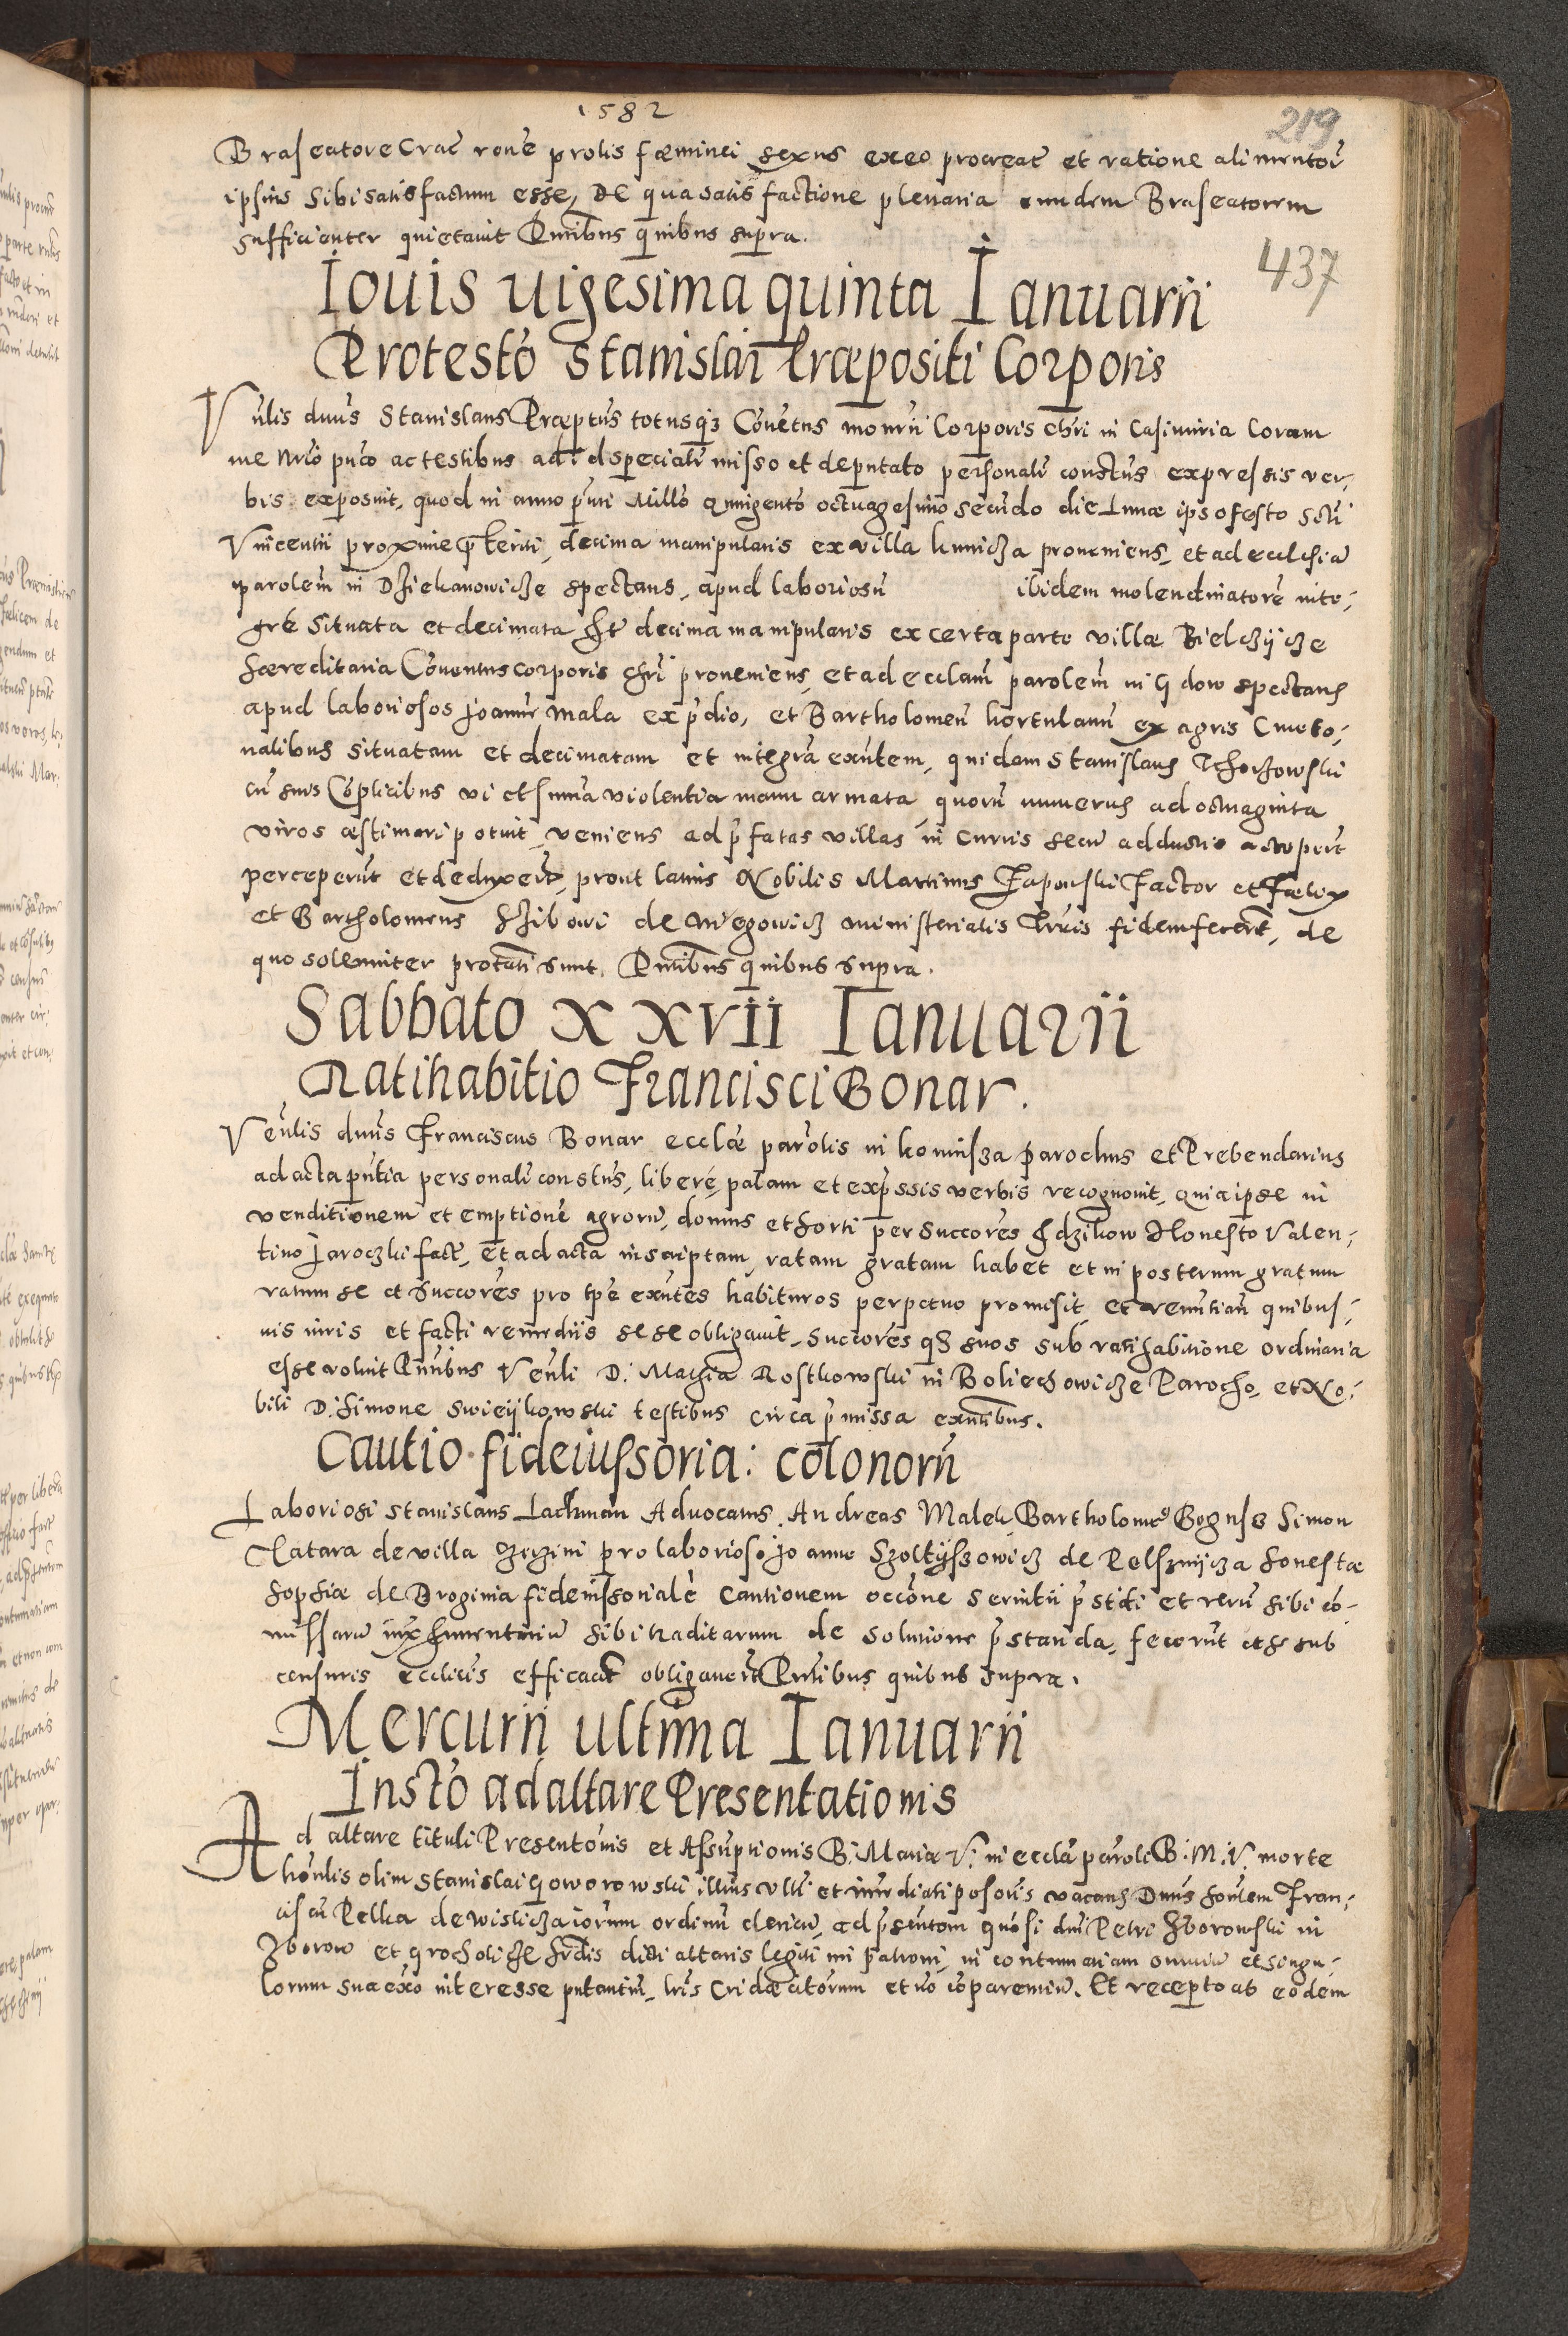 1582
219
Braseatore Crac̄ rōne prolis fœminei sexus ex eo procreat̄ et ratione alimentorū
ipsius sibi satisfactum esse, De qua satisfactione plenaria eundem Braseatorem
sufficienter quietavit Pn̄tibus quibus supra.
437
Iouis uigesima quinta Ianuarii
Protestō Stanislai Præpositi Corporis
Vn̄lis dnūs Stanislaus Præptūs totusq3 Cōuētus monrīi Corporis Chrī in Casimiria Coram
me Nrīo pub̄co ac testibus ad id specialr̄ misso et deputato personalr̄ constūs expressis ver-
bis exposuit, quod in anno pn̄ti Millō quingentō octuagesimo secūdo die Lunæ ipso festo Scti
Vincentii proxime p̄teriti, decima manipularis ex villa Kunicza proueniens, et ad ecclesiā
parolem̄ in Dziekanowicze spectans, apud laboriosū ibidem molendinatorē inte-
gre situata et decimata Itē decima manipularis ex certa parte villæ Bielczycze
hæreditaria Cōuentus corporis Chrī proueniens, et ad ecclam̄ parolem̄ in Gdow spectans
apud laboriosos Joannē Mala ex p̄dio, et Bartholomeū hortulanū ex agris Cmeto-
nalibus situatam et decimatam et integrā exn̄tem, quidam Stanislaus Tchorzowski
cū suis Cōplicibus vi et summa violentia manu armata, quorū numerus ad octuaginta
viros æstimari potuit, veniens ad p̄fatas villas in curris secū adductis acceper̄t
perceperūt et deduxerūt, prout latius Nobilis Martinus Japowski Factor et Fœlix
et Bartholomeus Zibowi de Niegowicz ministerialis Trr̄is fidem fecerūt, de
quo solenniter protati sunt, Pn̄tibus quibus supra.
Sabbato XXVII Ianuarii
Ratihabitio Francisci Bonar.
Venl̄is dnūs Franciscus Bonar ecclæ parolis in Koniusza parochus et Prebendarius
ad acta pn̄tia personalr̄ constūs, liberē, palam et exp̄ssis verbis recognouit, quia ipse in
venditionem et emptionē agrorū, domus et horti per Succores Gdzikow Honesto Valen-
tino Jaroczki fact̄, et ad acta inscriptam, ratam gratam habet et in posterum gratum
ratum se et Succores pro tp̄e exn̄tes habituros perpetuo promisit et renun̄tian̄ quibus-
uis iuris et facti remediis sese obligauit, Succores q3 suos sub ratihabitione ordinaria
esse voluit Pn̄tibus Venl̄i D. Mathia Rostkowski in Boliechowicze Parocho, et No-
bili D. Simone Swieykowski testibus circa p̄missa exn̄tibus.
Cautio fideiussoria: colonorū
Laboriosi Stanislaus Lachman Aduocatus, Andreas Malek Bartholome9 Bogusz Simon
Tatara de villa pro laborioso Joanne Szoltyszowicz de honestæ
Sophiæ de Droginia fideiussorialē Cautionem occōne Seruitii p̄stiti et rerū sibi cō-
missarū sibi traditarum de solutione p̄standa, fecerūt et se sub
censuris ecclicis efficacr̄ obligauerūt Pn̄tibus quibus supra.
Mercurii ultima Ianuarii
Instō ad altare Presentationis
Ad altare tituli Presentōnis et Assūptionis B. Mariæ V. in eccla parōli B. M. V. morte
honl̄is olim Stanislai Goworowski illius vlti et imediati posoris vacans Dnūs honlem Fran-
ciscū Pelka de Wislicza iorum ordinū clericū, ad p̄sentōm Gn̄osi dni Petri Zborowski in
Zborow et Grocholicze hrd̄is dicti altaris legitimi patroni, in contumaciam omniū et singu-
lorum sua ex̄co interesse putantiū, lris Cridæ citorum et nō cōparentiū. Et recepto ab eodem